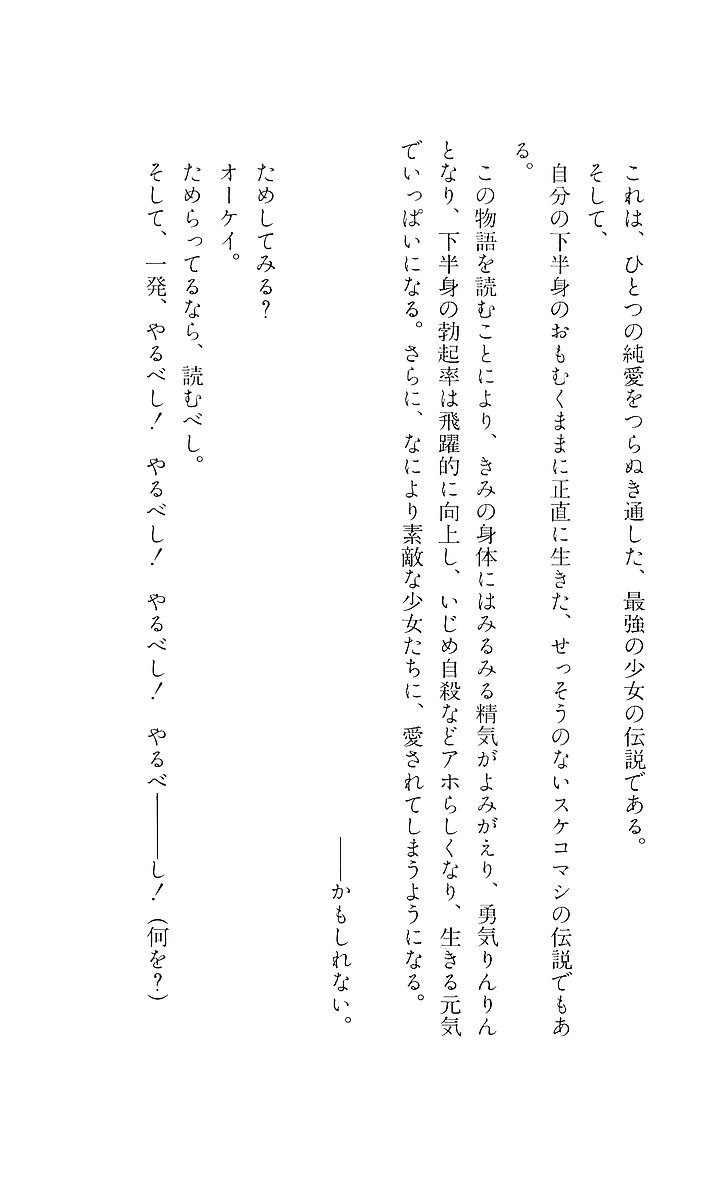 これは、ひとつの純愛をつらぬき通した、最強の少女の伝説である。
そして、
自分の下半身のおもむくままに正直に生きた、せっそうのないスケコマシの伝説でもあ
る。
この物語を読むことにより、きみの身体にはみるみる精気がよみがえり、勇気りんりん
となり、下半身の勃起率は飛躍的に向上し、いじめ自殺などアホらしくなり、生きる元気
でいっぱいになる。さらに、なにより素敵な少女たちに、愛されてしまうようになる。
――かもしれない。
ためしてみる？
オーケイ。
ためらってるなら、読むべし。
そして、一発、やるべし！　やるべし！　やるべし！　やるべ――――し！（何を？）